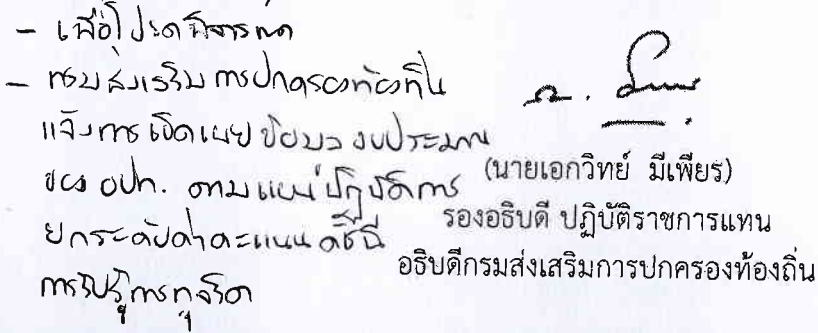 - เพื่อโปรดพิจารณา
- กรมส่งเสริมการปกครองท้องถิ่น
แจ้งการเปิดเผยข้อมูลงบประมาณ
ของ อปท. ตามแผนปฏิบัติการ
ยกระดับค่าคะแนนดัชนี
การรับรู้การทุจริต
(นายเอกวิทย์ มีเพียร)
รองอธิบดี ปฏิบัติราชการแทน
อธิบดีกรมส่งเสริมการปกครองท้องถิ่น